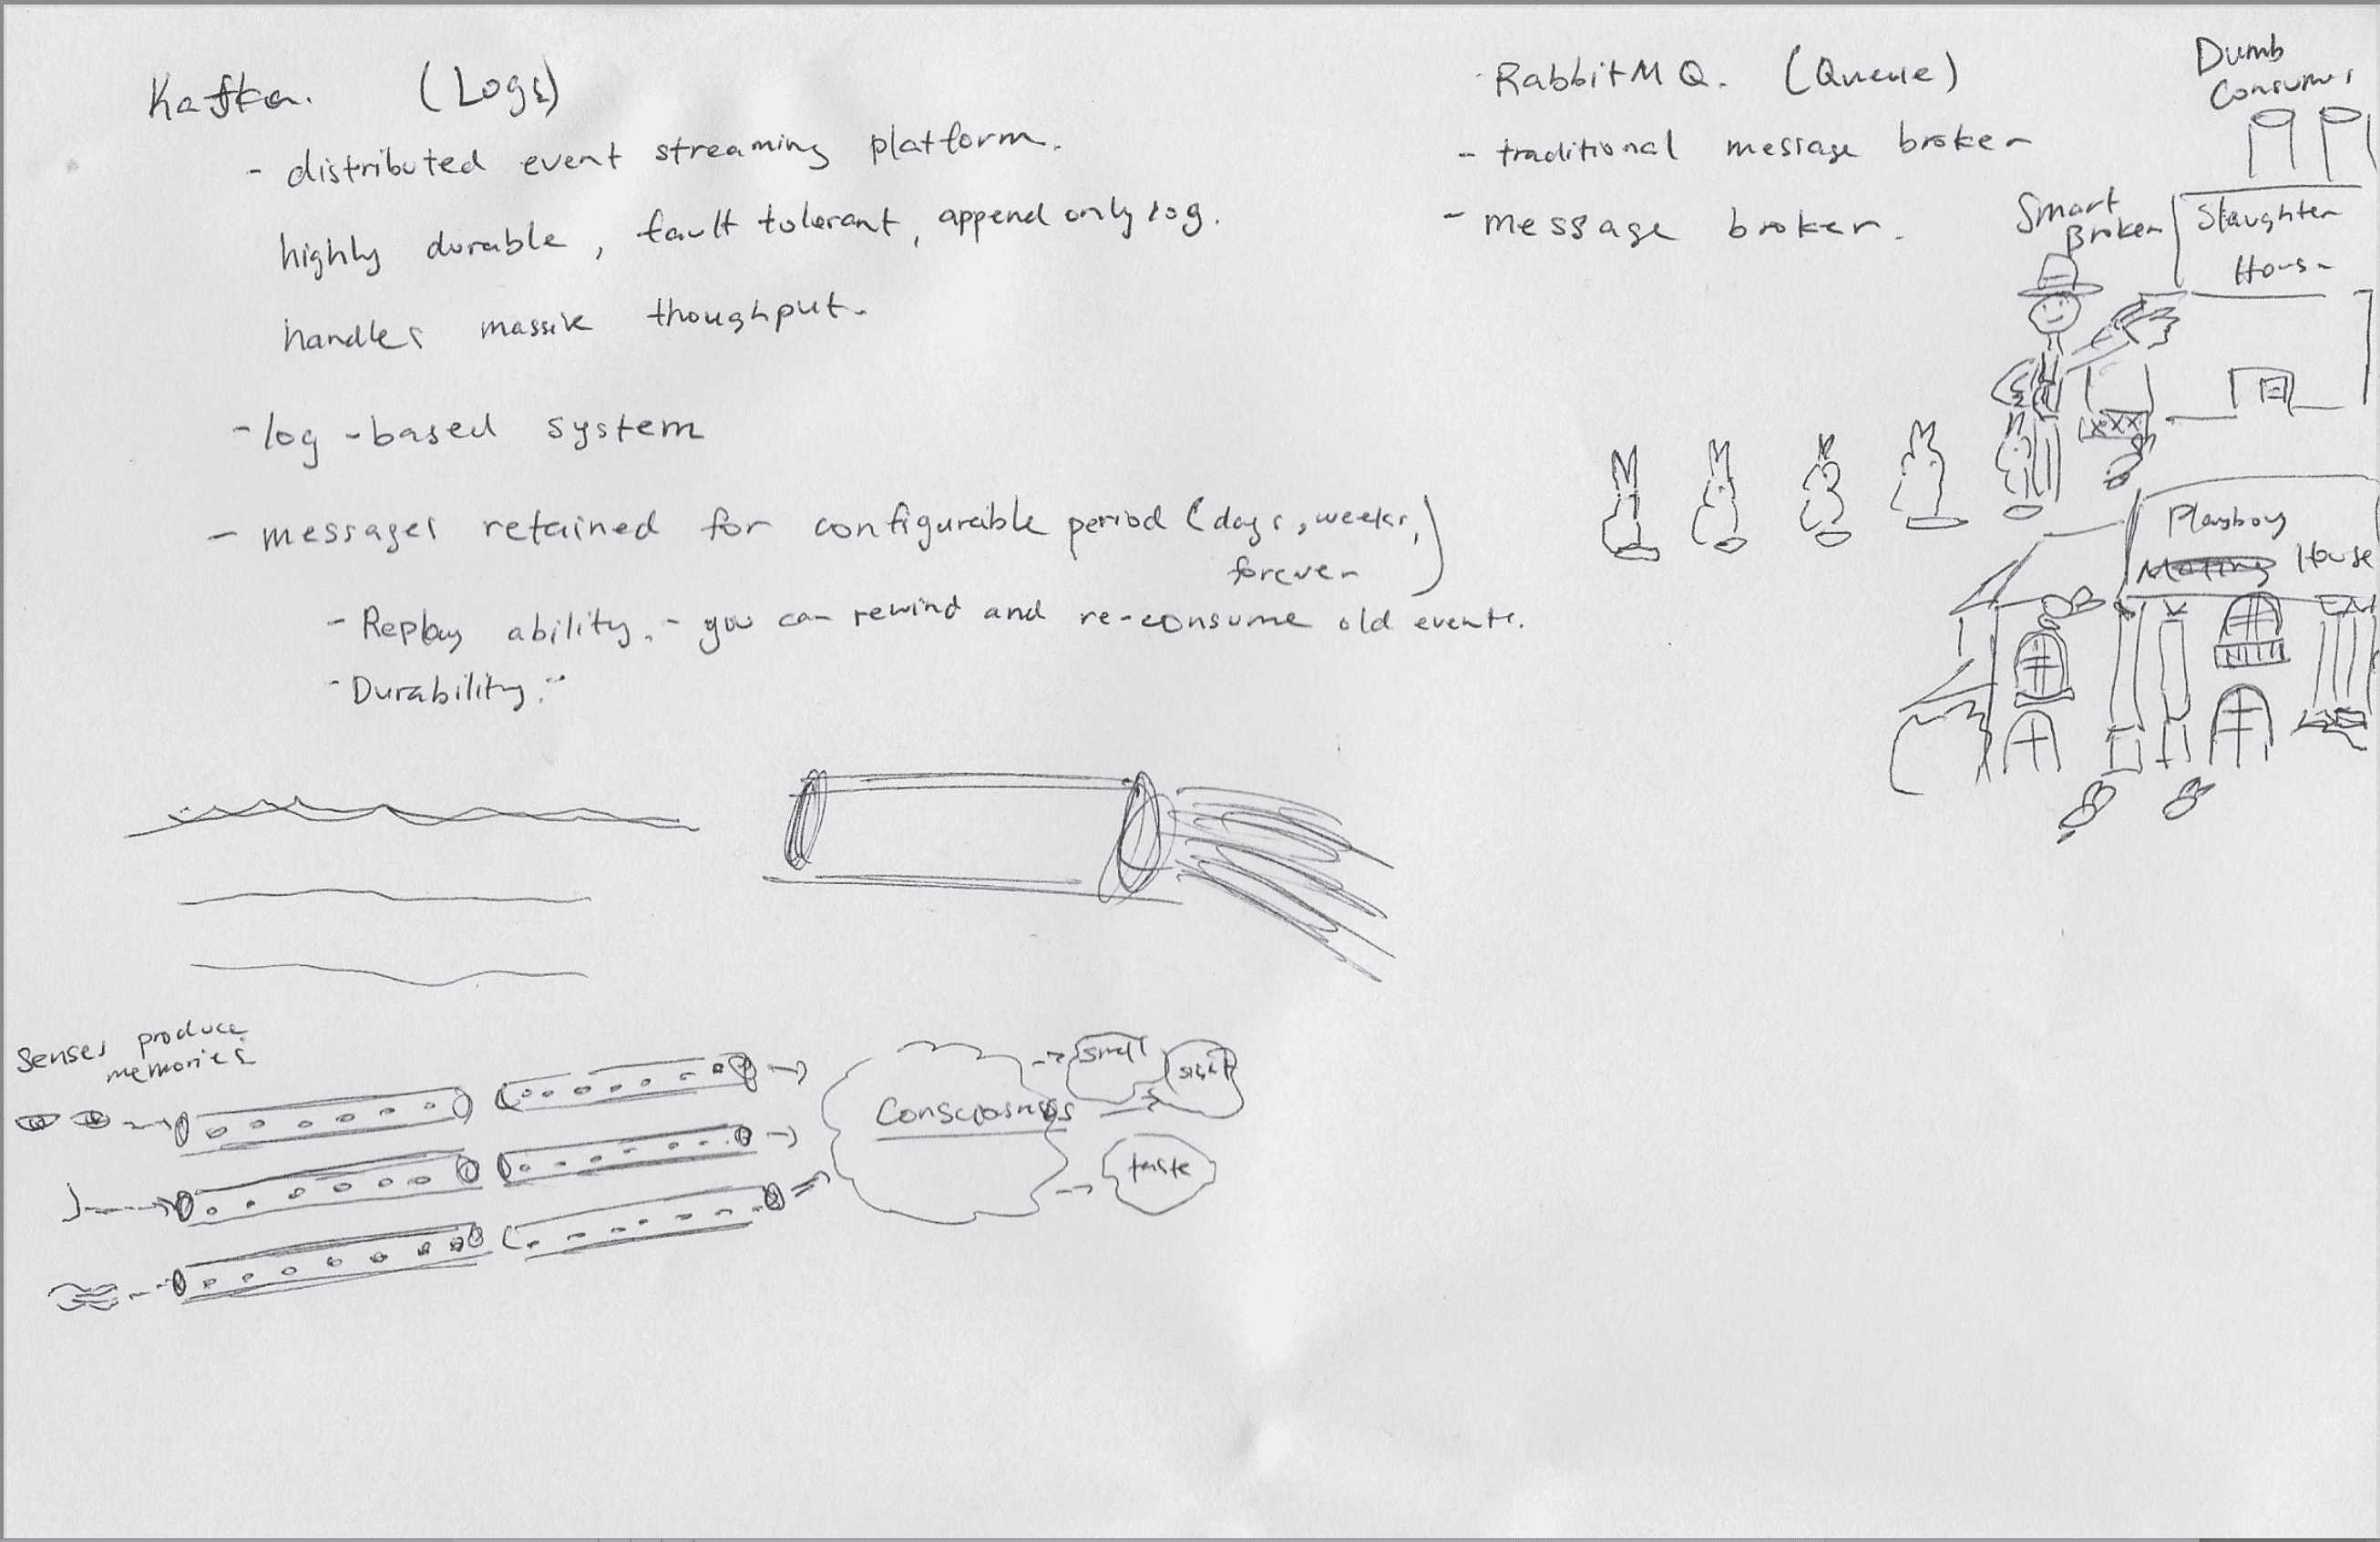 Kafka. (Logs)
- distributed event streaming platform.
highly durable, fault tolerant, append only log.
handles massive thoughput.
- log-based system
- messages retained for configurable period (days, weeks,
forever)
- Replay ability. - you can rewind and re-consume old events.
- Durability:-
Senses produce
memories
Consciosness
smell
sight
taste
RabbitMQ. (Queue)
- traditional message broker
- message broker.
Dumb
Consumer
Smart
Broker
Slaughter
House
Playboy
House